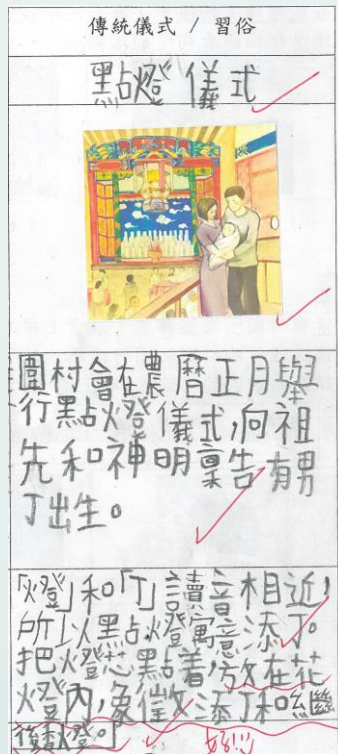 傳統儀式 / 習俗
點燈儀式
圍村會在農曆正月舉
行點燈儀式,向祖
先和神明稟告有男
丁出生。
「燈」和「丁」讀音相近,
所以點燈寓意添丁。
把燈芯點着,放在花
燈內,象徵添丁和繼
後燈。